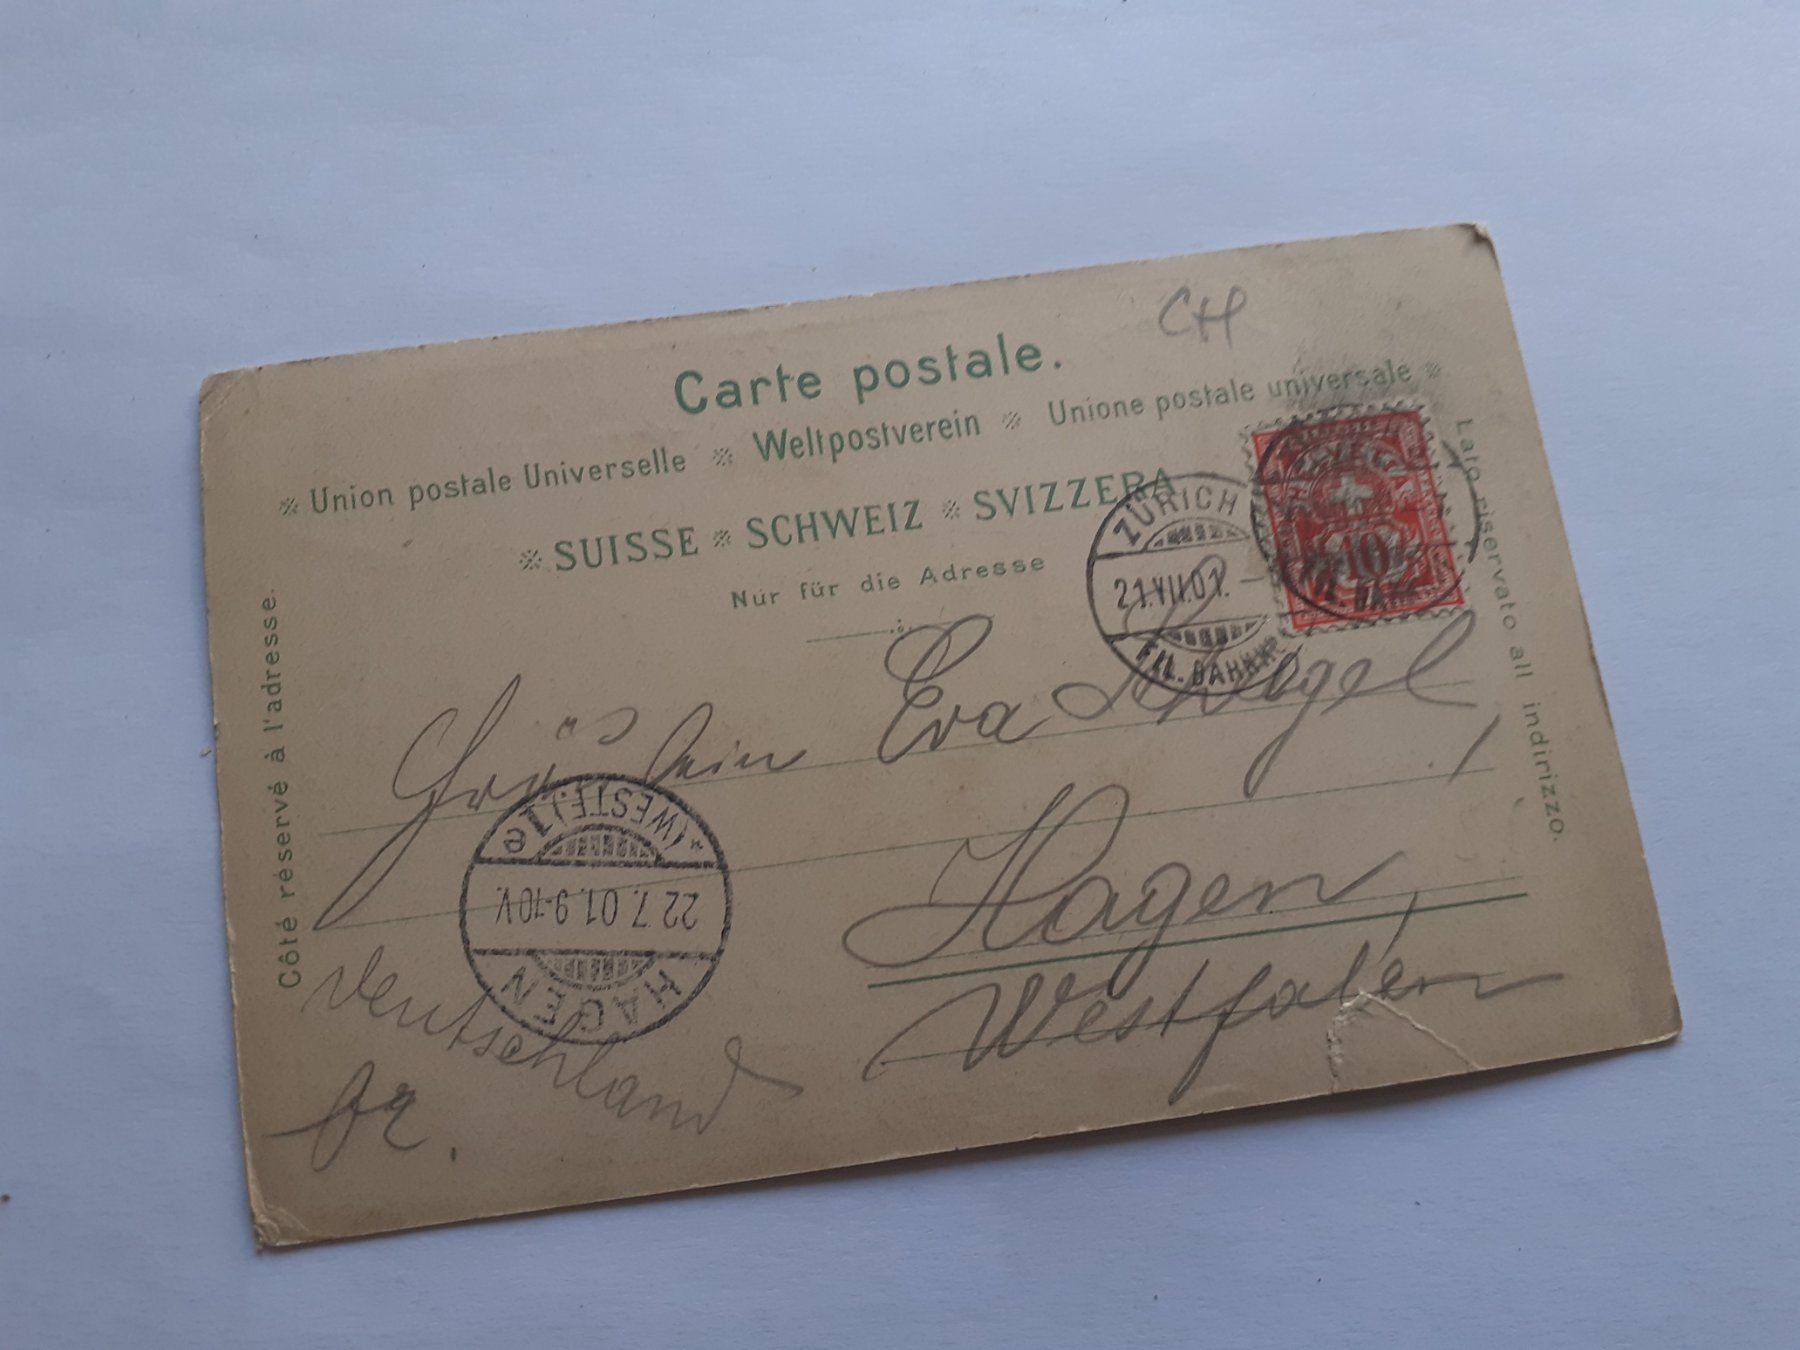 CH
Carte postale.
※ Union postale Universelle ※ Weltpostverein ※ Unione postale universale ※
※ SUISSE ※ SCHWEIZ ※ SVIZZERA
Nur für die Adresse
Côté réservé à l'adresse.
Lato riservato all indirizzo.
ZÜRICH
21.VII.01.-
FIL. BAHNHF
HELVETIA
10
Fräulein Eva
Hagen,
Westfalen
Deutschland
HAGEN
22.7.01.9-10V.
*(WESTF.)1e